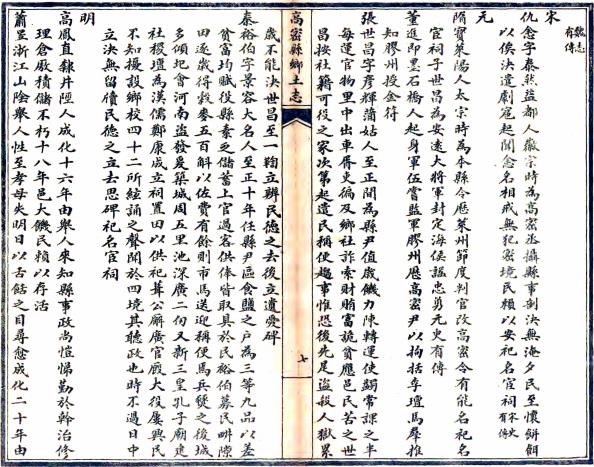 魏志
有傳
宋
仇悆字泰然益都人徽宗時為高密丞攝縣事剖決無滯夕民至懷餅餌
以俟決遣劇寇起聞悆名相戒無犯密境民賴以安祀名宦祠宋史有傳
元
隋寶萊陽人太宗時為本縣令歷萊州節度判官改高密令有能名祀名
宦祠子世昌為安遠大將軍封定海侯諡忠勇元史有傳
董進即墨石橋人起身軍伍嘗監軍膠州歷高密尹以拘括李璮馬羣推
知膠州授金符
張世昌字彥輝蒲姑人至正間為縣尹值歲饑力陳轉運使蠲常課之半
每運官物里中出車胥吏徧及鄉社詐索財賄富詭貧應邑民苦之世
昌按社籍可役之家次第起遣民稱便趨事惟恐後先是盜殺人獄累
高密縣鄉土志
七
歲不能決世昌至一鞫立辨民德之去後立遺愛碑
秦裕伯字景容大名人至正十年任縣尹區食鹽之户為三等九品以差
貧富均賦役縣素乏儲蓄上官過客供俸皆取具於民裕伯募民畊隙
田逐歲得穀麥五百斛以佐費有餘則市馬送迎稱便馬兵燹之後城
多傾圮會河南盜發爰築城周五里池深廣二仞又新三皇孔子廟建
社稷壇為漢儒鄭康成立祠置田以供祀葺公廨廣官廄大役屢興民
不知擾設鄉校四十二所絃誦之聲聞於四境其聽政也時不過日中
立決無留牘民德之立去思碑祀名宦祠
明
高鳳直隸井陘人成化十六年由舉人來知縣事政尚愷悌勤於幹治修
理倉廒積儲不朽十八年邑大饑民賴以存活
蕭昱浙江山陰舉人性至孝母失明日以舌餂之目尋愈成化二十年由